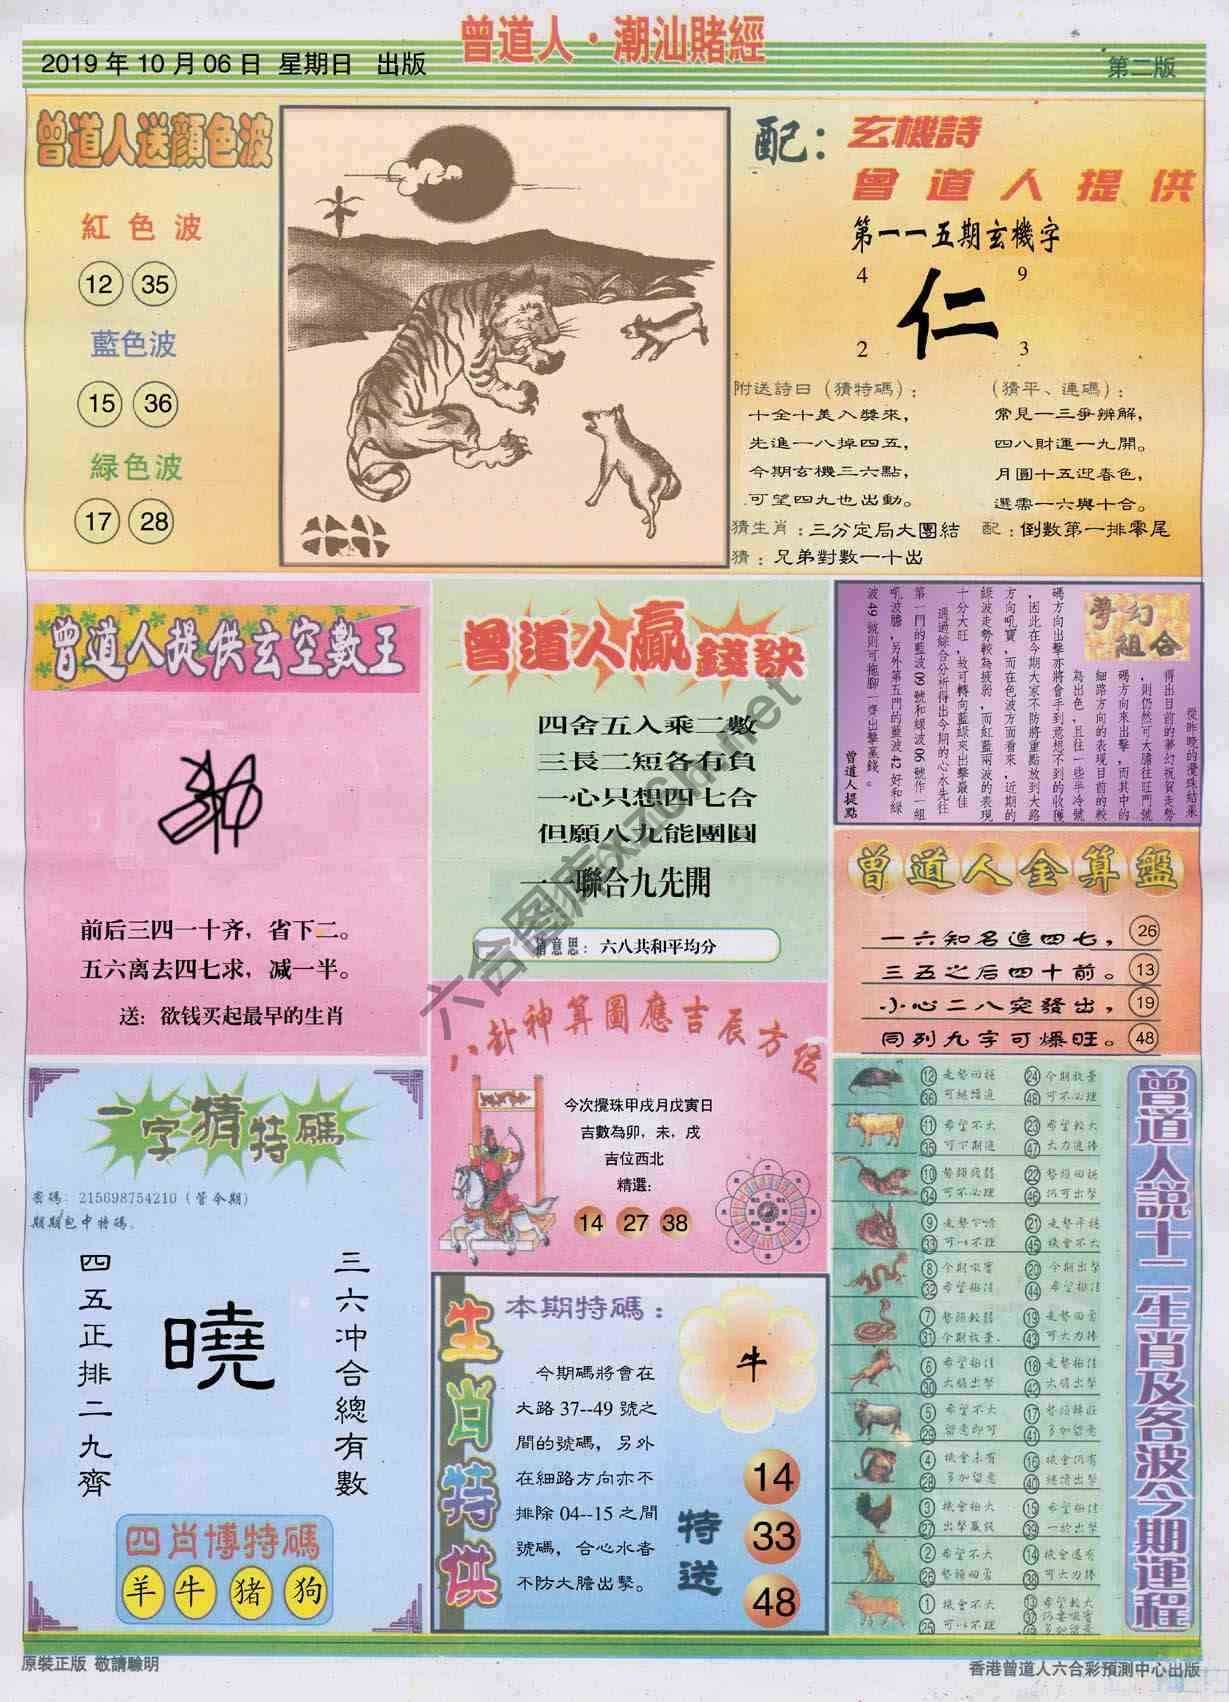 曾道人·潮汕賭經
2019年10月06日 星期日 出版
第二版
曾道人送顏色波
紅色波
12 35
藍色波
15 36
綠色波
17 28
配：
玄機詩
曾道人提供
第一一五期玄機字
4 9
仁
2 3
附送詩曰（猜特碼）：
十全十美入獎來，
先進一八掉四五，
今期玄機三六點，
可望四九也出動。
（猜平、連碼）：
常見一三爭辨解，
四八財運一九開。
月圓十五迎春色，
選需一六與十合。
猜生肖：三分定局大團結
配：倒數第一排零尾
猜：兄弟對數一十出
曾道人提供玄空數王
前后三四一十齐，省下二。
五六离去四七求，减一半。
送：欲钱买起最早的生肖
曾道人贏錢訣
四舍五入乘二數
三長二短各有負
一心只想四七合
但願八九能團圓
一一聯合九先開
猜意思：六八共和平均分
夢幻組合
從昨晚的攪珠結果
得出目前的夢幻祝賀走勢
，則仍然可大膽往旺門號
碼方向來出擊，而其中的
細路方向的表現目前的較
為出色，且往一些半冷號
碼方向出擊亦將會手到意想不到的收獲
，因此在今期大家不防將重點放到大路
方向吼寶，而在色波方面看來，近期的
綠波走勢較為疲弱，而紅藍兩波的表現
十分大旺，故可轉向藍綠來出擊最佳
。通過綜合分析得出今期的心水先往
第一門的藍波09號和綠波06號作一組
吼波膽，另外第五門的藍波42好和綠
波49號則可拖腳一齊出擊贏錢。
曾道人提點
曾道人金算盤
一六知名追四七， 26
三五之后四十前。 13
小心二八突發出， 19
同列九字可爆旺。 48
八卦神算圖應吉辰方位
今次攪珠甲戌月戊寅日
吉數為卯，未，戌
吉位西北
精選：
14 27 38
一字猜特碼
密碼：215698754210（管今期）
期期包中特碼。
四五正排二九齊
曉
三六冲合總有數
四肖博特碼
羊 牛 猪 狗
生肖特供
本期特碼：
牛
今期碼將會在
大路37--49號之
間的號碼，另外
在細路方向亦不
排除04--15之間
號碼，合心水者
不防大膽出擊。
特送
14
33
48
曾道人說十二生肖及各波今期運程
12 36 24 48
11 希望不大 35 可下期追 23 希望較大 47 大力追捧
10 34 可不必理 22 46 仍可出擊
9 33 可以不理 21 走勢平穩 45 機會不大
8 32 希望極佳 20 今期出擊 44 希望極佳
7 31 今期放棄 19 43 可大力捧
6 希望極佳 30 大膽出擊 18 走勢極佳 42 大膽出擊
5 希望不大 29 留意即可 17 41 多加留意
4 機會未有 28 多加留意 16 機會仍有 40 繼續出擊
3 機會極大 27 出擊贏錢 15 希望極佳 39 一於出擊
2 希望不大 26 14 機會還有 38 可大力捧
1 機會不大 25 可以不理 13 希望較大 37 49 多加留意
六合图库xxz6h.net
原裝正版 敬請驗明
香港曾道人六合彩預測中心出版